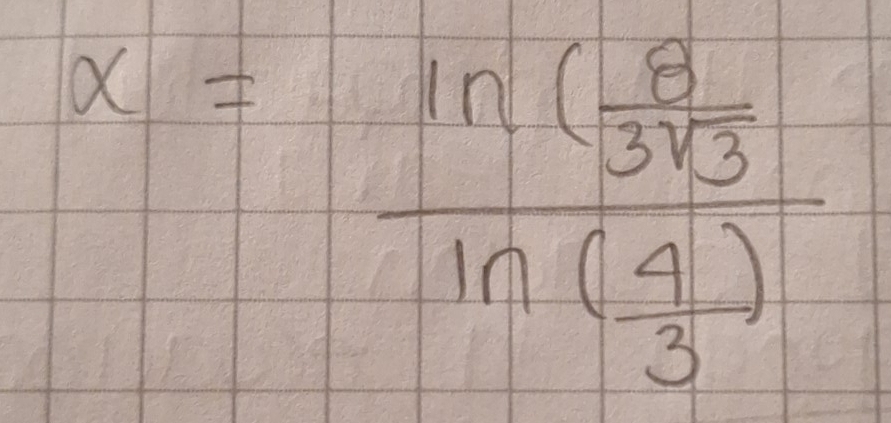 α = ln(8/3√3 / ln(4/3)